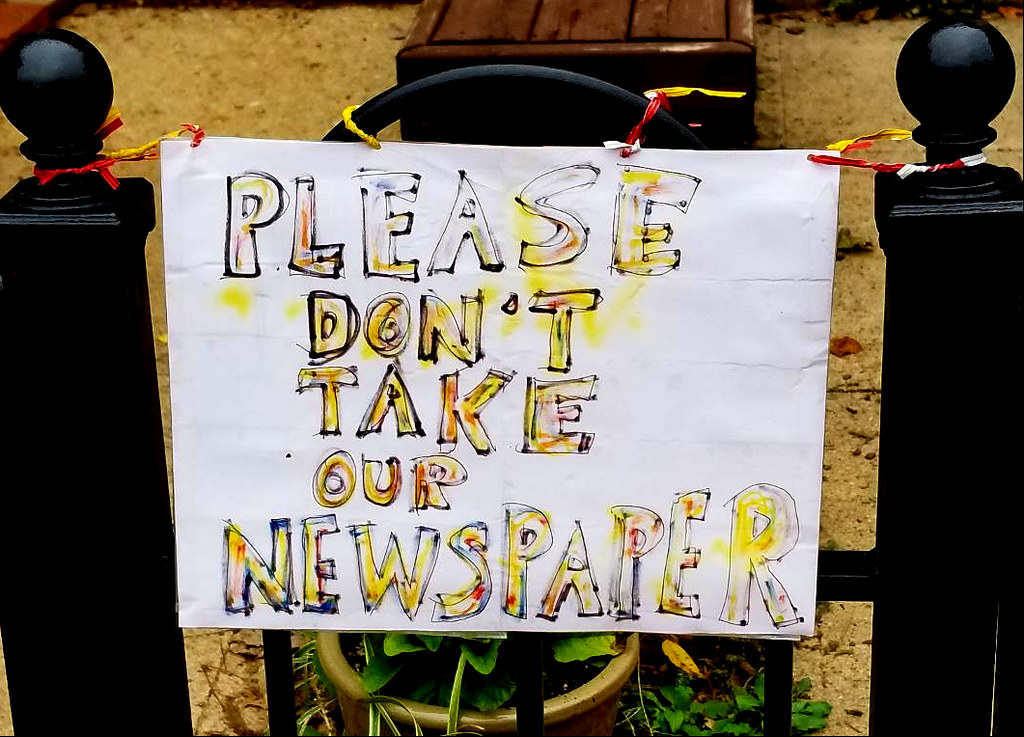 PLEASE
DON'T
TAKE
OUR
NEWSPAPER